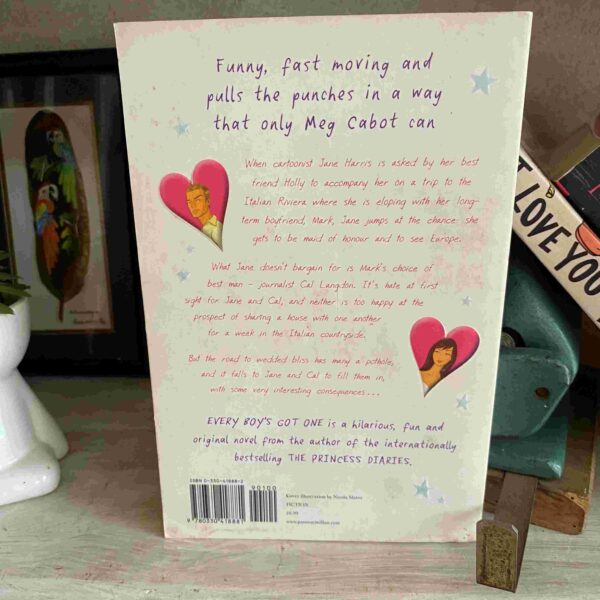 Funny, fast moving and
pulls the punches in a way
that only Meg Cabot can
When cartoonist Jane Harris is asked by her best
friend Holly to accompany her on a trip to the
Italian Riviera where she is eloping with her long-
term boyfriend, Mark, Jane jumps at the chance: she
gets to be maid of honour and to see Europe.
What Jane doesn't bargain for is Mark's choice of
best man - journalist Cal Langdon. It's hate at first
sight for Jane and Cal, and neither is too happy at the
prospect of sharing a house with one another
for a week in the Italian countryside.
But the road to wedded bliss has many a pothole,
and it falls to Jane and Cal to fill them in,
with some very interesting consequences...
EVERY BOY'S GOT ONE is a hilarious, fun and
original novel from the author of the internationally
bestselling THE PRINCESS DIARIES.
ISBN 0-330-41888-2
90100
9 780330 418881
Cover illustration by Nicola Slater
FICTION
£6.99
www.panmacmillan.com
LOVE YOU